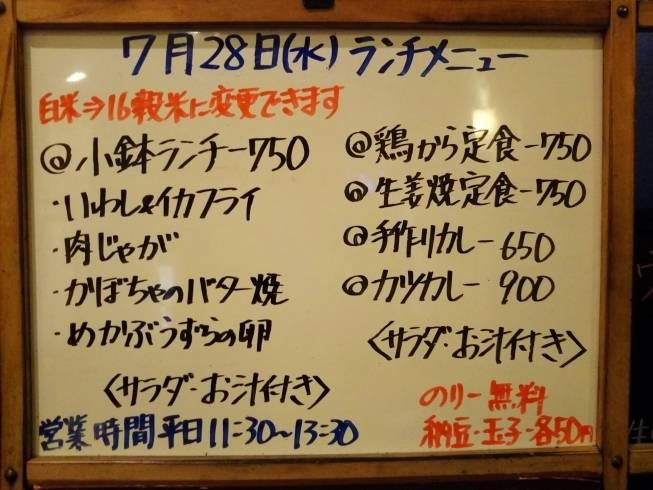 7月28日(水) ランチメニュー
白米⇒16穀米に変更できます
@小鉢ランチー750
・いわし&イカフライ
・肉じゃが
・かぼちゃのバター焼
・めかぶうずらの卵
〈サラダ・お汁付き〉
営業時間平日11:30〜13:30
@鶏から定食ー750
@生姜焼定食ー750
@手作りカレー650
@カツカレー 900
〈サラダ・お汁付き〉
のりー無料
納豆・玉子・各50円